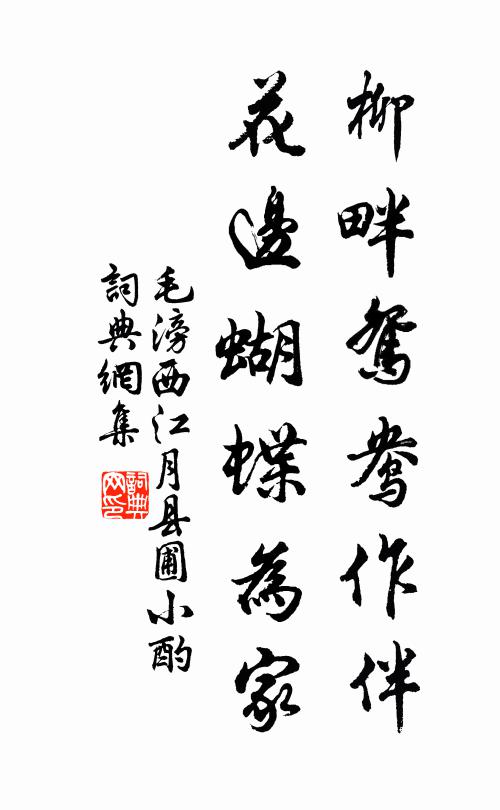 柳畔鴛鴦作伴
花邊蝴蝶為家
毛滂西江月县圃小酌
詞典網集
詞典网印